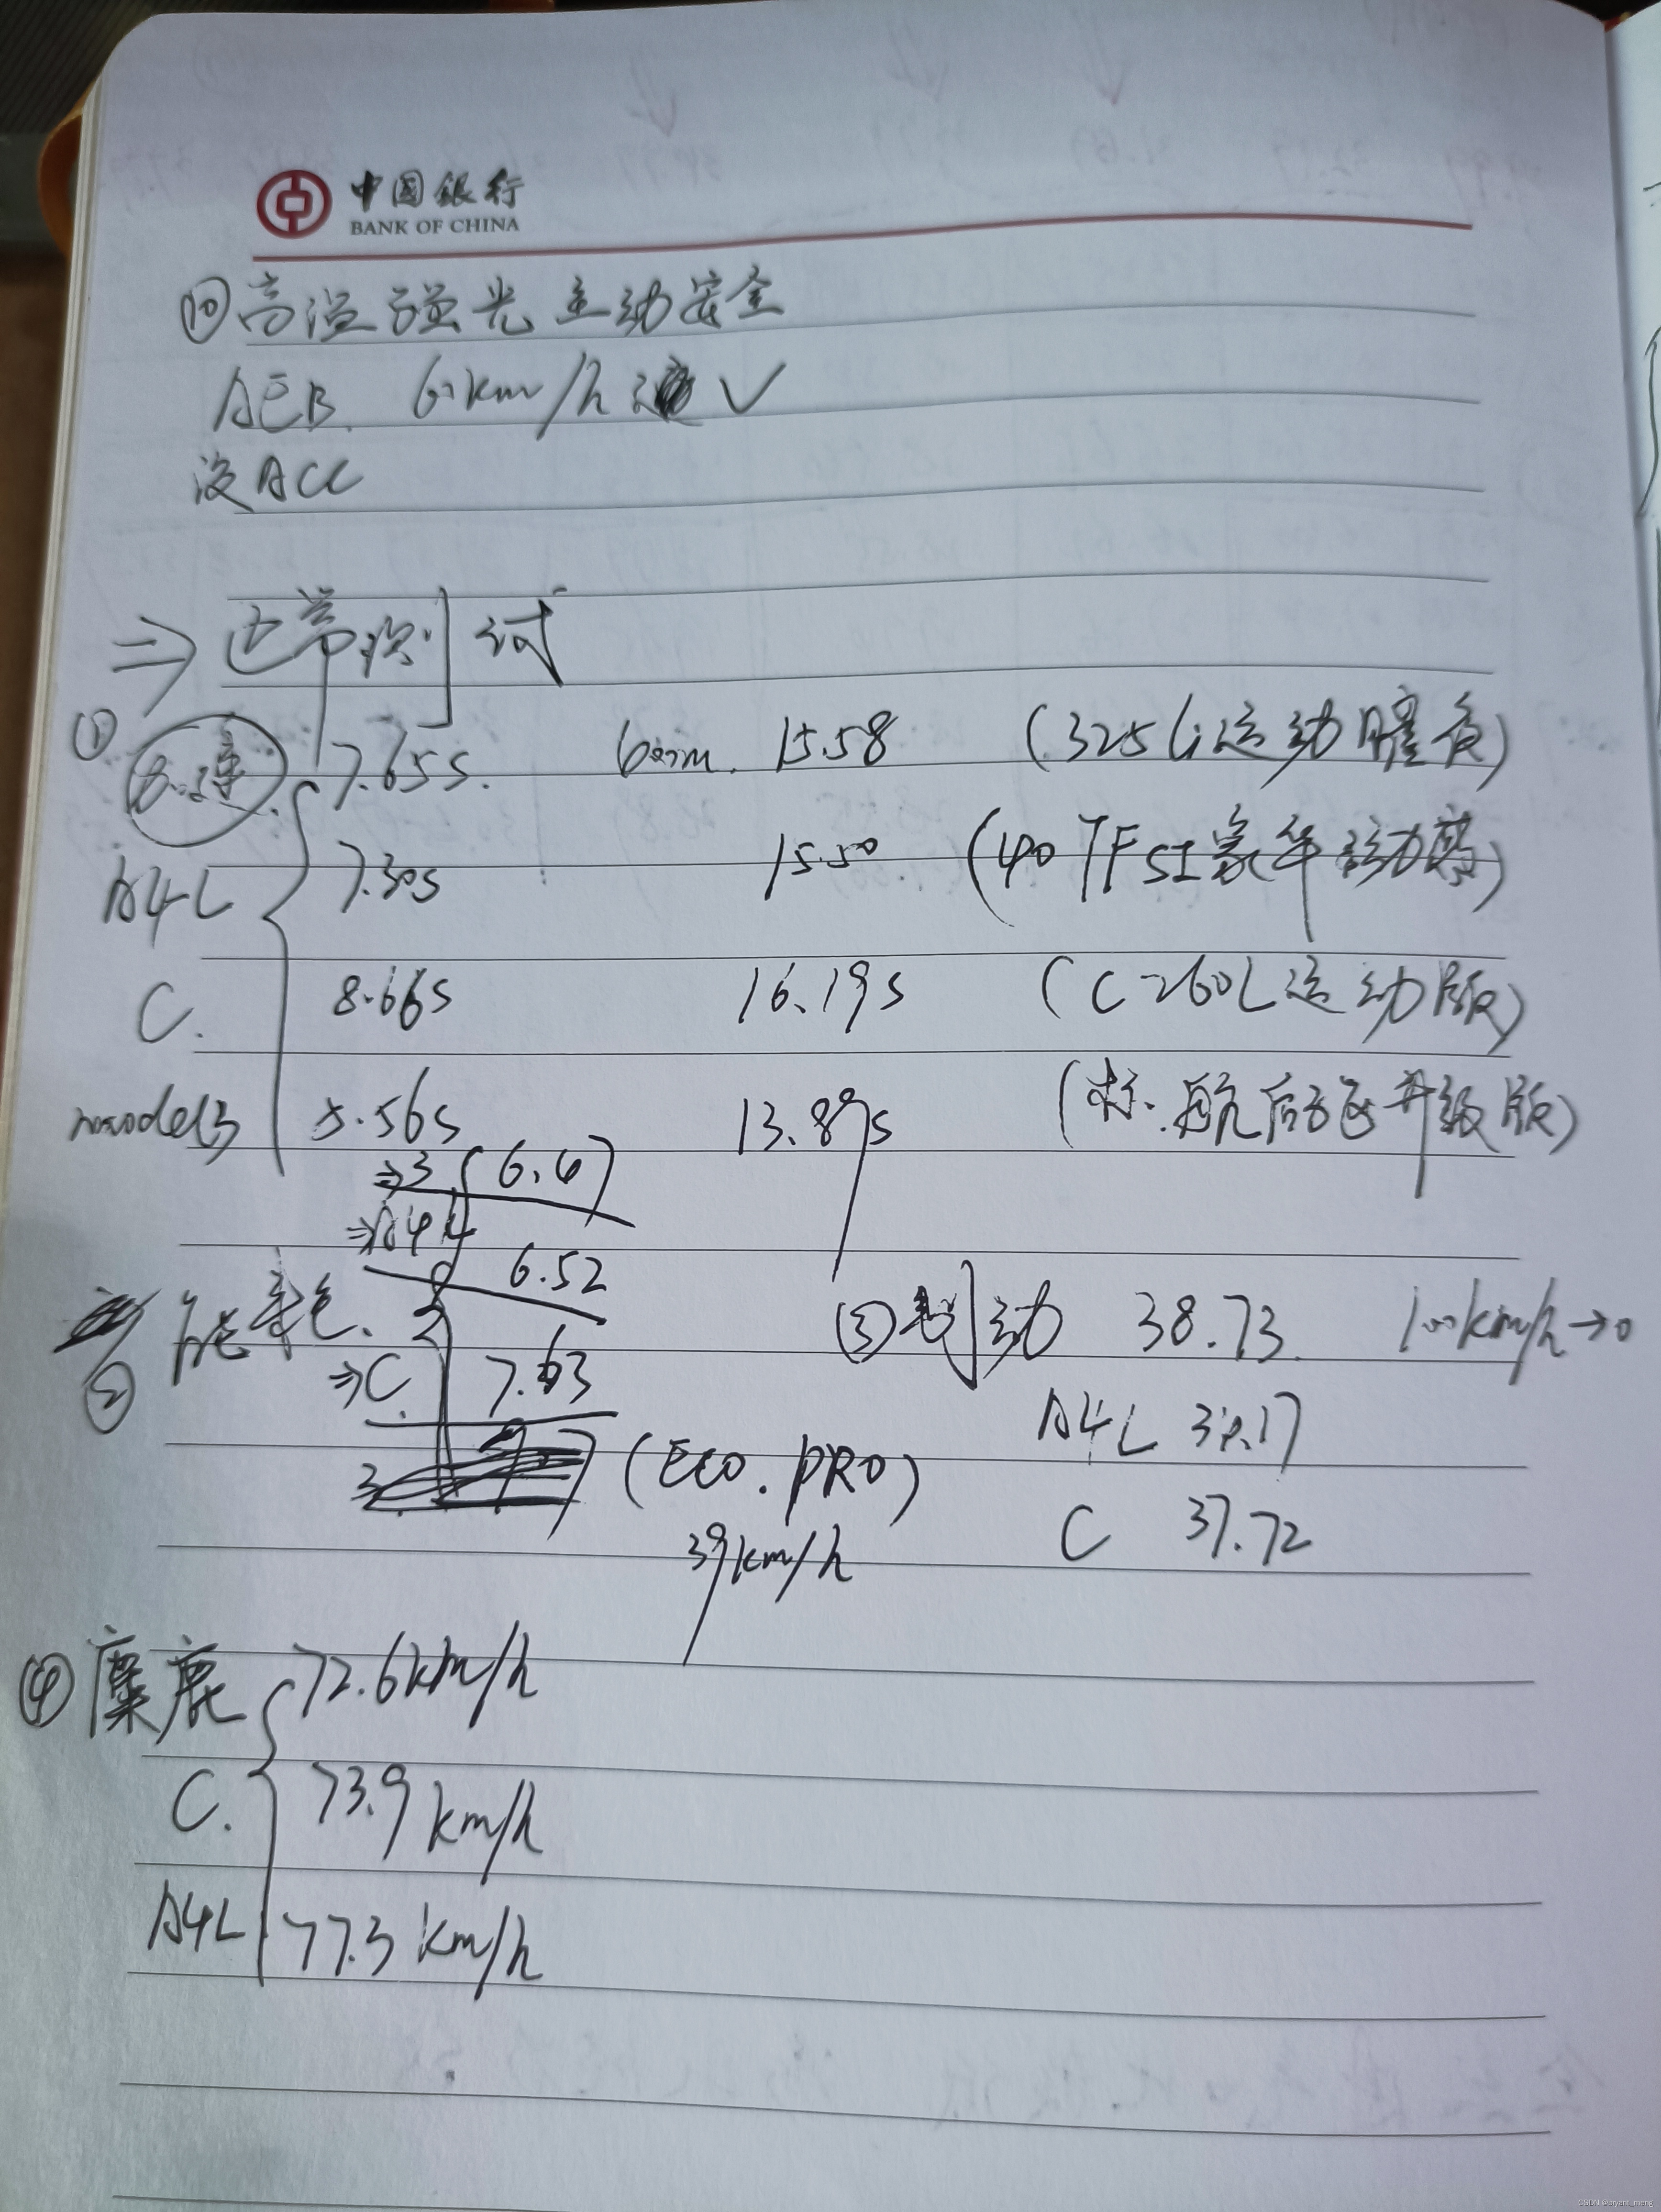 中国銀行
BANK OF CHINA
⑩高温强光主动安全
AEB. 60km/h ✓
没ACC
⇒ 正常测试
① 加速 7.65s. 600m. 15.58 (325Li运动曜夜)
A4L 7.30s 15.50 (40 TFSI豪华动感)
C. 8.66s 16.19s (C260L运动版)
model3 5.56s 13.89s (标.航后驱升级版)
⇒3 (6.6)
⇒A4L 6.52
② 能耗.
⇒C. 7.63
3 (ECO.PRO)
39km/h
③制动 38.73. 100km/h→0
A4L 38.17
C 37.72
④麋鹿 72.6km/h
C. 73.9km/h
A4L 77.3km/h
CSDN @bryant_meng